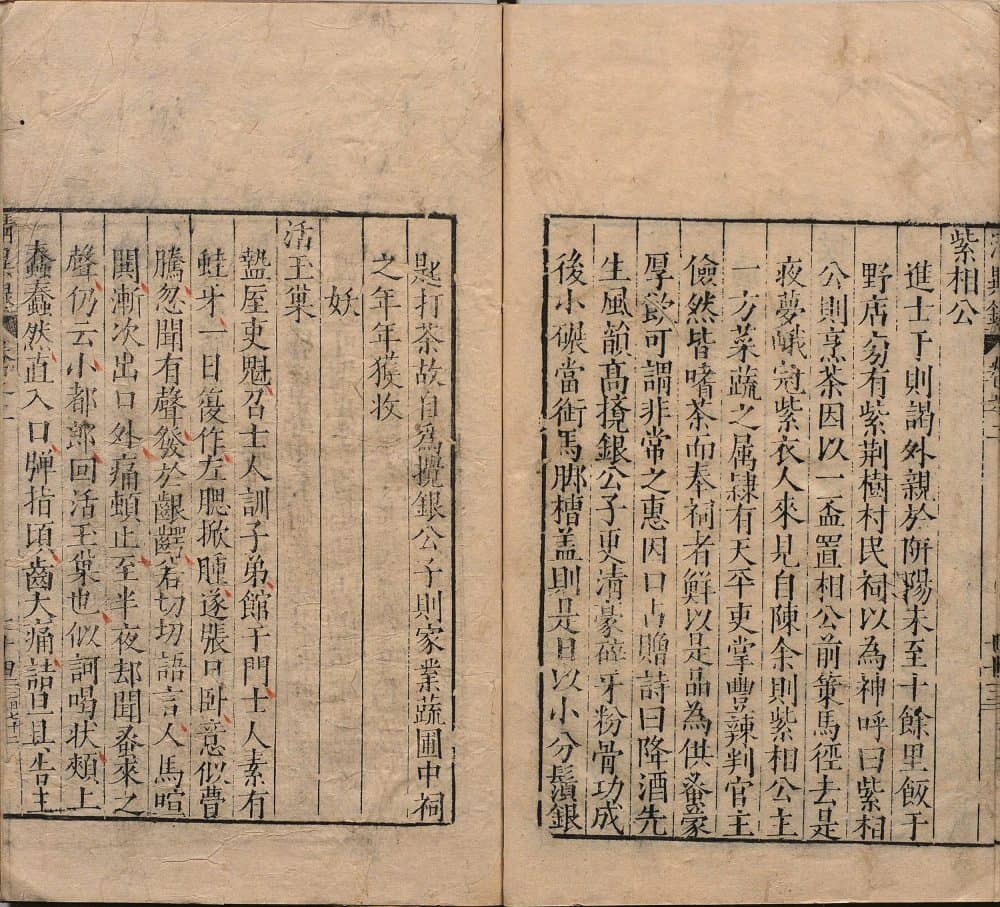 紫相公
進士于則謁外親於汧陽未至十餘里飯于
野店旁有紫荆樹村民祠以為神呼曰紫相
公則烹茶因以一盃置相公前策馬徑去是
夜夢峨冠紫衣人來見自陳余則紫相公主
一方菜蔬之属隷有天平吏掌豐辣判官主
儉然皆嗜茶而奉祠者鮮以是品為供蚤蒙
厚飲可謂非常之惠因口占贈詩曰降酒先
生風韻髙攪銀公子更清豪碎牙粉骨功成
後小碾當銜馬脚槽盖則是日以小分鬚銀
匙打茶故自為攪銀公子則家業蔬圃中祠
之年年獲收
妖
活玉巢
盩厔吏魁召士人訓子弟館于門士人素有
蛀牙一日復作左腮掀腫遂張口卧意似瞢
騰忽聞有聲發於齦齶若切切語言人馬喧
閧漸次出口外痛頓止至半夜却聞蚤來之
聲仍云小都郎回活玉巢也似訶喝状頰上
蠢蠢然直入口弾指頃齒大痛詰旦具告主